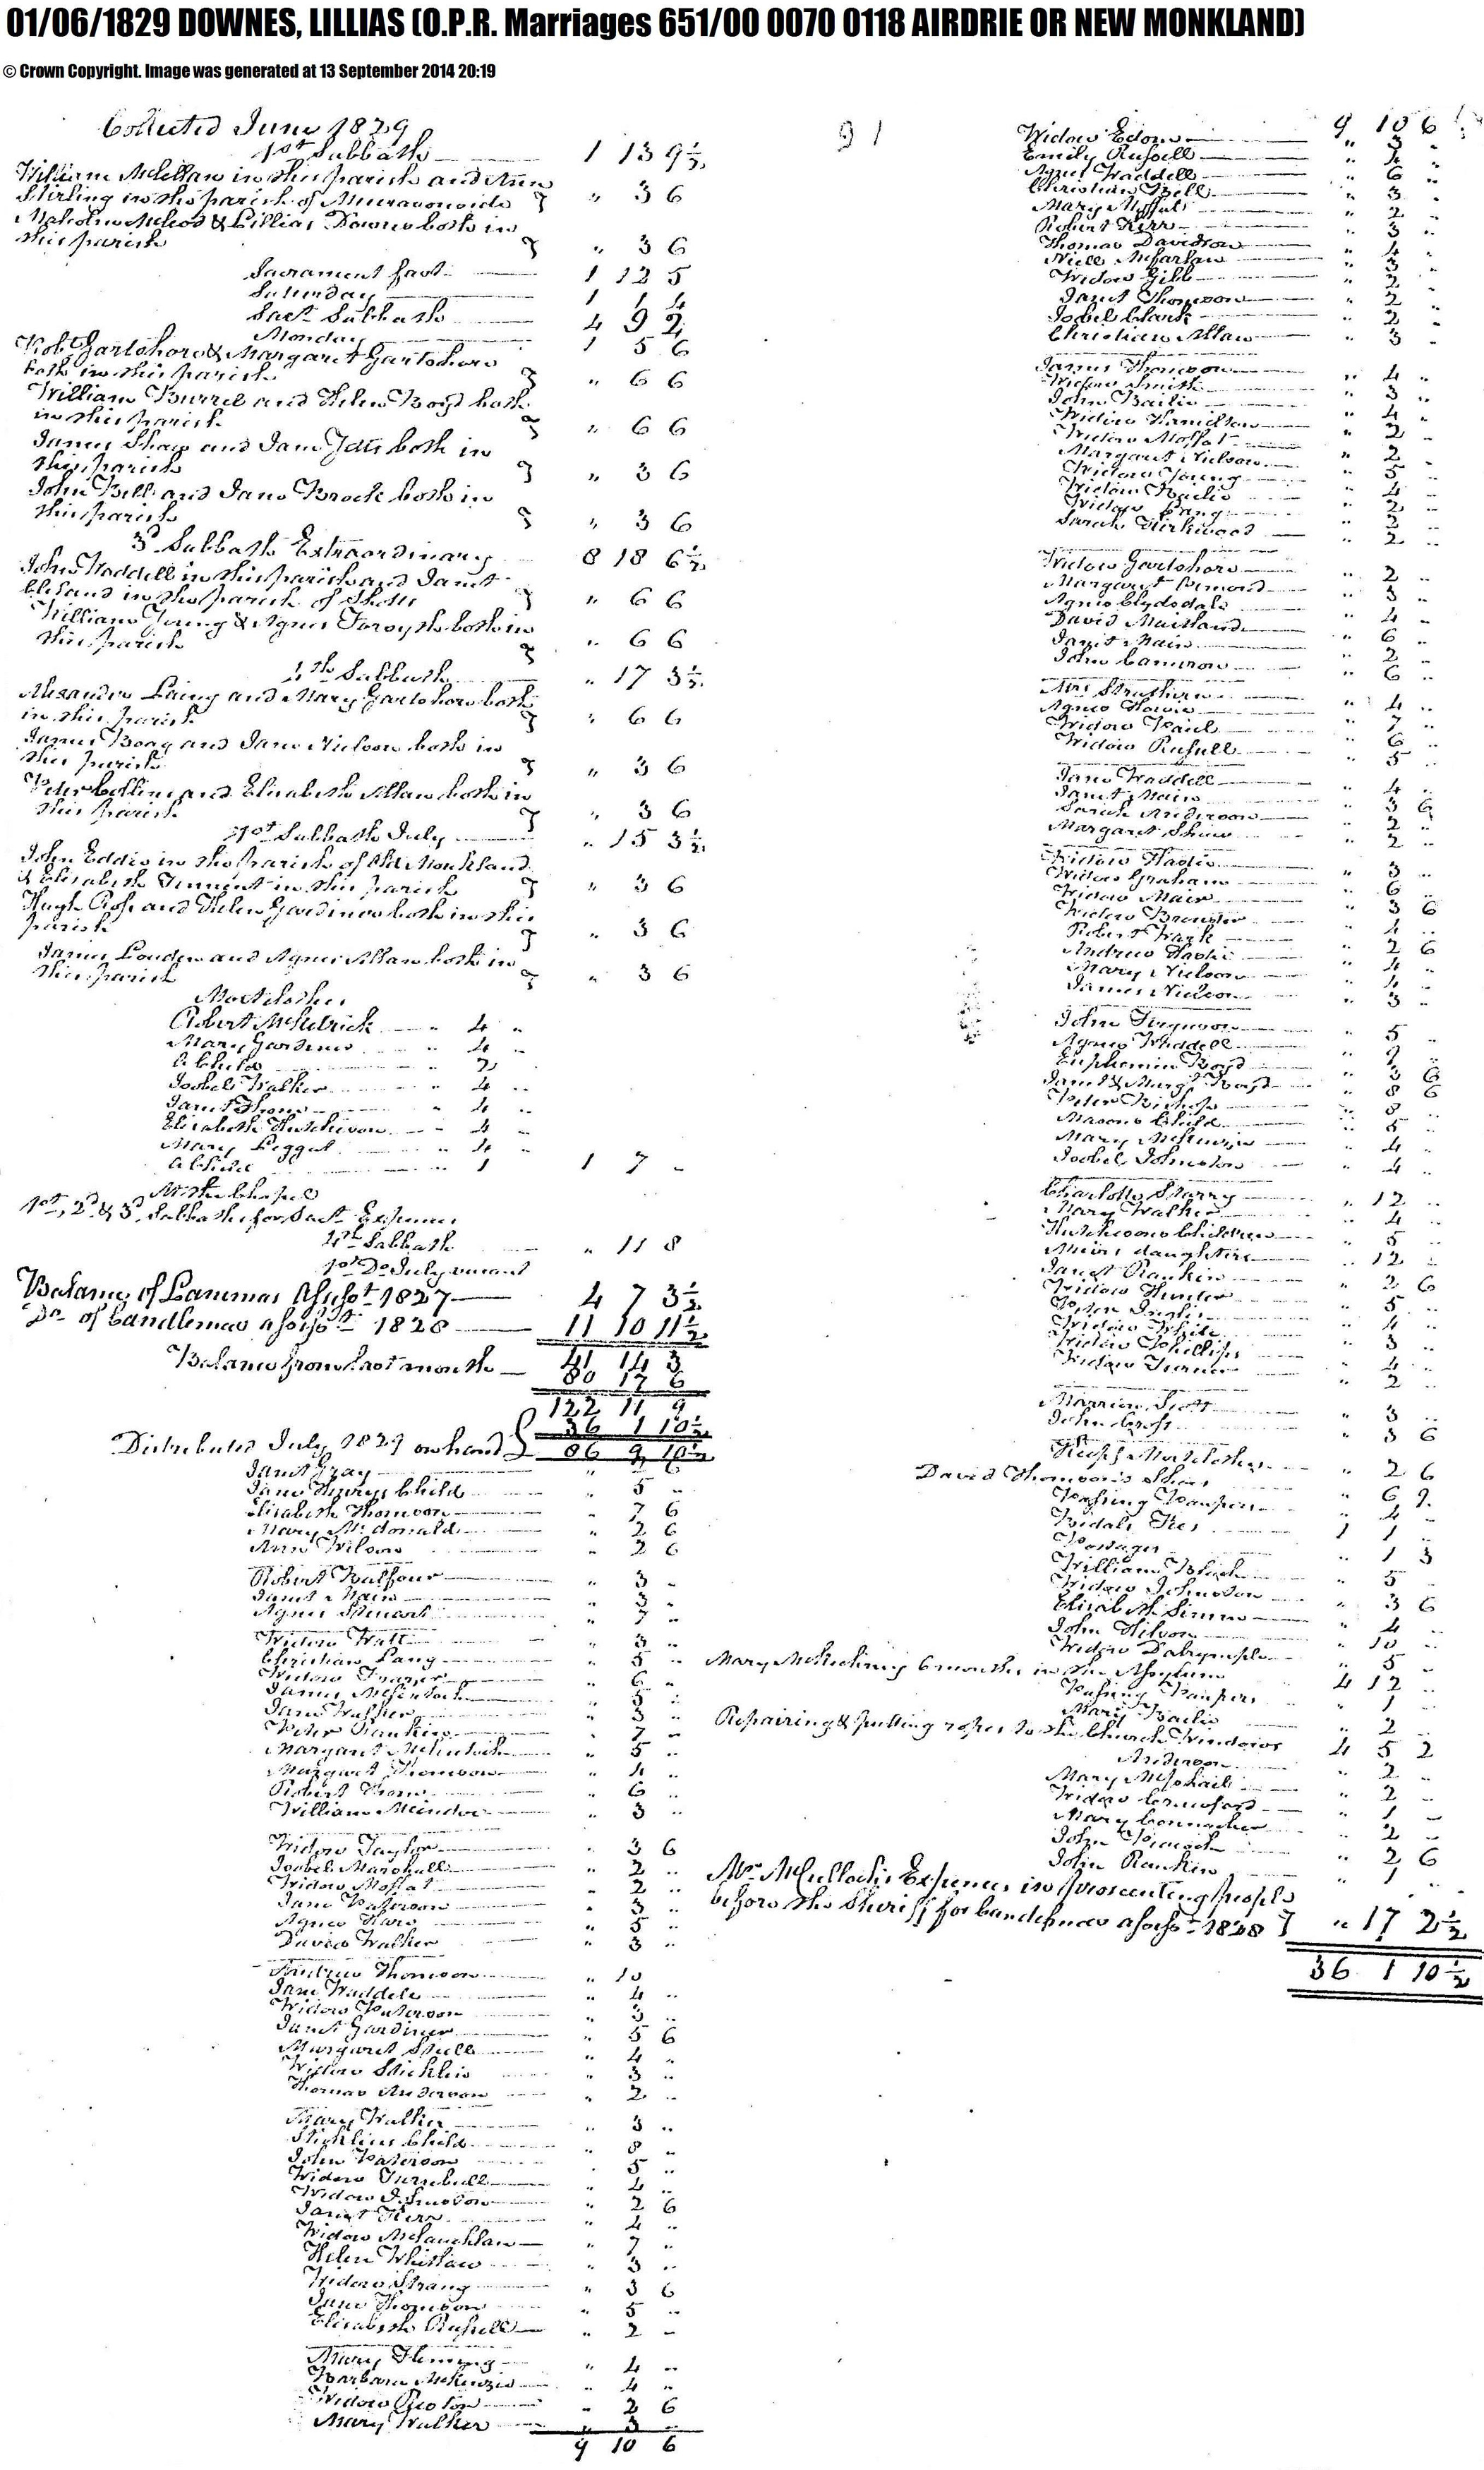 01/06/1829 DOWNES, LILLIAS (O.P.R. Marriages 651/00 0070 0118 AIRDRIE OR NEW MONKLAND)
© Crown Copyright. Image was generated at 13 September 2014 20:19
Collected June 1829
1st Sabbath 1 13 9½
William McLellan in this parish and Ann
Stirling in the parish of Muiravonside } " 3 6
Malcolm McLeod & Lillias Downes both in
this parish } " 3 6
Sacrament fast 1 12 5
Saturday 1 1 4
Sact Sabbath 4 9 2
Monday 1 5 6
Robt Gartshore & Margaret Gartshore
both in this parish } " 6 6
William Burrel and Helen Boyd both
in this parish } " 6 6
James Shaw and Jane both in
this parish } " 3 6
John Bell and Jane Brock both in
this parish } " 3 6
3d Sabbath Extraordinary 8 18 6½
John Waddell in this parish and Janet
Cleland in the parish of Shotts } " 6 6
William Young & Agnes Forsyth both in
this parish } " 6 6
4th Sabbath " 17 3½
Alexander Laing and Mary Gartshore both
in this parish } " 6 6
James Boag and Jane Nielson both in
this parish } " 3 6
Peter Collins and Elizabeth Allan both in
this parish } " 3 6
1st Sabbath July " 15 3½
John Eddie in the parish of Old Monkland
& Elizabeth Tennent in this parish } " 3 6
Hugh Ross and Helen Gardiner both in this
parish } " 3 6
James Louden and Agnes Allan both in
this parish } " 3 6
Mortcloths
Robert McKedrick " 4 "
Mary Gardiner " 4 "
A Child " 2
Isobel Walker " 4 "
Janet Thom " 4 "
Elizabeth Hutchison " 4
Mary Leggat " 4 "
A Child 1 1 7 "
1st, 2d & 3d Sabbaths for Sact Expenses
4th Sabbath " 11 8
1st Do July vacant
Balance of Lammas Assesst 1827 4 7 3½
Do of Candlemas assesst 1828 11 10 11½
41 14 3
Balance from last month 80 17 6
122 11 9
36 1 10½
Distributed July 1829 on hand } 86 9 10½
Janet Gray
Jane Child " 5 "
Elizabeth Thomson " 7 6
Mary McDonald " 2 6
Ann Wilson " 2 6
Robert Balfour " 3 "
Janet Nairn " 3 "
Agnes Stewart " 7 "
Widow Watt " 3 "
Christian Lang " 5 "
Widow Frazer " 6 "
James McIntosh " 5 "
Jane Walker " 3 "
Peter Rankin " 7 "
Margaret McIntosh " 5 "
Margaret Thomson " 4 "
Robert Thom " 6 "
William " 3 "
Widow Taylor " 3 6
Isobel Marshall " 2 "
Widow Moffat " 2 "
Jane Paterson " 3 "
Agnes " 5 "
David Walker " 3 "
Thomson " 10
Jane Waddell " 4 "
Widow Paterson " 3 "
Janet Gardiner " 5 6
Margaret Steell " 4 "
Widow Sticklin " 3 "
Thomas Anderson " 2 "
Mary Walker " 3 "
Sticklins Child " 8 "
John Paterson " 5 "
Widow Turnbull " 4 "
Widow Johnston " 2 6
Janet Kerr " 4 "
Widow McLauchlan " 7 "
Helen Whitlaw " 3 "
Widow Strang " 3 6
Jane Thomson " 5 "
Elizabeth Russell " 2 "
Mary Fleming " 4 "
Barbara McKenzie " 4 "
Widow " 2 6
Mary Walker " 3 "
9 10 6
91
9 10 6
Widow Edom " 3 "
Emily Russell " 4 "
Agnes Waddell " 6 "
Christian Bell " 3 "
Mary Moffat " 2 "
Robert Kerr " 3 "
Thomas Davidson " 4 "
Niell McFarlan " 3 "
Widow Gibb " 2 "
Janet Thomson " 2 "
Isobel Clark " 2 "
Christian Allan " 3 "
James Thomson " 4 "
Widow Smith " 3 "
John Bailie " 4 "
Widow Hamilton " 2 "
Widow Moffat " 2 "
Margaret Nielson " 5 "
Widow Young " 4 "
Widow Bailie " 2 "
Widow Lang " 2 "
Sarah Kirkwood " 2 "
Widow Gartshore " 2 "
Margaret " 3 "
Agnes Clydsdale " 4 "
David Maitland " 6 "
Janet Nairn " 2 "
John Cameron " 6 "
Mrs Struthers " 4 "
Agnes Howie " 7 "
Widow " 6 "
Widow Russell " 5 "
Jane Waddell " 4 "
Janet Nairn " 3 6
Sarah Anderson " 2 "
Margaret Shaw " 2 "
Widow " 3 "
Widow Graham " 6 "
Widow Mair " 3 6
Widow Brownlie " 4 "
Robert Wark " 2 6
Andrew " 4 "
Mary Nielson " 4 "
James Nielson " 3 "
John Ferguson " 5 "
Agnes Waddell " 2 "
Euphemia Boyd " 3 6
Janet & Margt Boyd " 8 6
Peter " 8 "
Masons Child " 5 "
Mary McKenzie " 4 "
Isobel Johnston " 4 "
Charlotte Starry " 12 "
Mary Walker " 4 "
Hutchisons Children " 5 "
Muirs daughters " 12 "
Janet Rankin " 2 6
Widow Hunter " 5 "
Inglis " 4 "
Widow White " 3 "
Widow Phillips " 4 "
Widow Turner " 2 "
Marrion Scott " 3 "
John Cross " 3 6
Mortcloths " 2 6
David Thomson's Shoes " 6 9
Passing Paupers " 4 "
Bridals Fees 1 1 "
Postages " 1 3
William Black " 5 "
Widow Johnston " 3 6
Elizab McSimm " 4 "
John Wilson " 10 "
Widow Dalrymple " 5 "
Mary McKechnie 6 months in the Asylum 4 12 "
Passing Paupers " 1 "
Mary Bailie " 2 "
Repairing & putting ropes to the Church Windows 4 5 2
Anderson " 2 "
Mary McPhail " 2 "
Widow Crawford " 1 "
Mary Connacher " 2 "
John " 2 6
John Rankin " 1 "
Mr McCulloch's Expenses in prosecuting people
before the Sheriff for Candlemas assesst 1828 } " 17 2½
36 1 10½